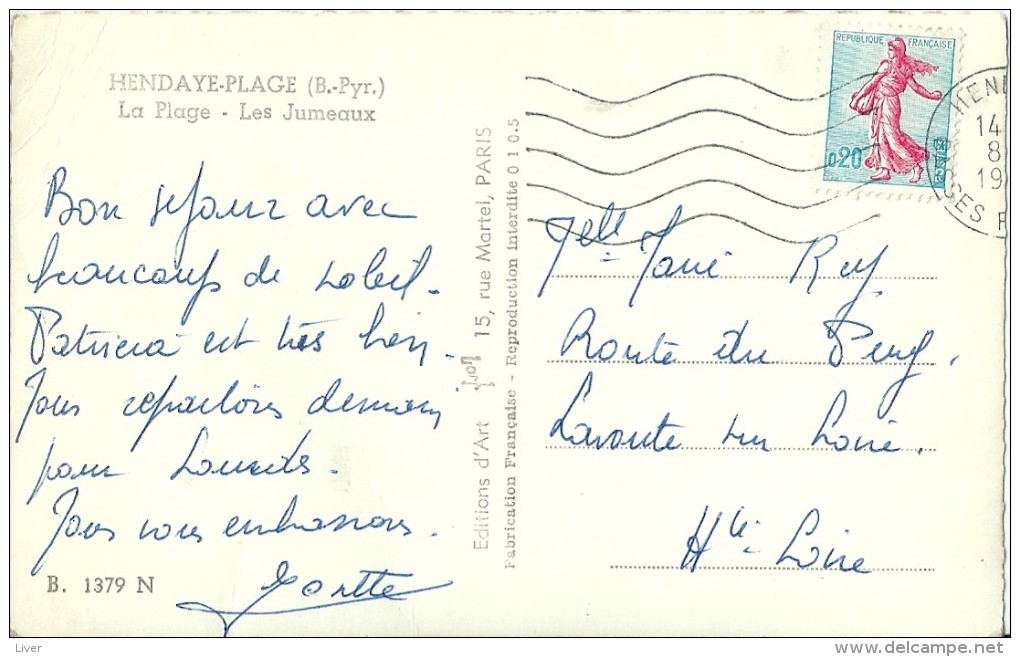 HENDAYE-PLAGE (B.-Pyr.)
La Plage - Les Jumeaux
Bon séjour avec
beaucoup de soleil.
Patricia est très bien.
Nous repartons demain
pour Lourdes.
Nous vous embrassons.
B. 1379 N
Editions d'Art yvon 15, rue Martel, PARIS
Fabrication Française - Reproduction interdite 0 1 0.5
REPUBLIQUE FRANÇAISE
0,20
POSTES
HEND
14
8
19
SES P
Melle Marie Rey
Route du Puy.
Lavoute sur Loire.
Hte-Loire
Liver
www.delcampe.net